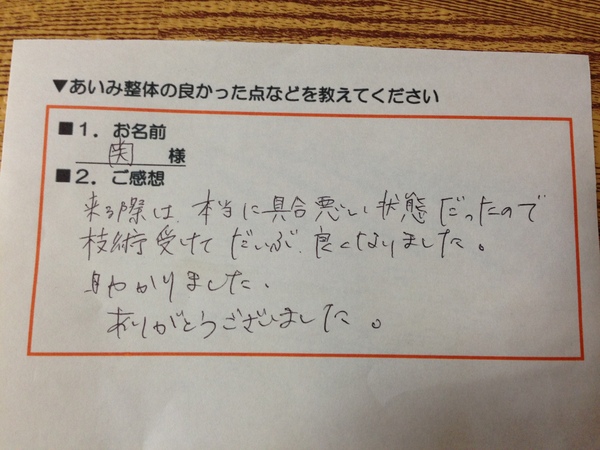 ▼あいみ整体の良かった点などを教えてください
■1．お名前
関 様
■2．ご感想
来る際は、本当に具合悪い状態だったので
技術受けて だいぶ、良くなりました。
助かりました、
ありがとうございました。